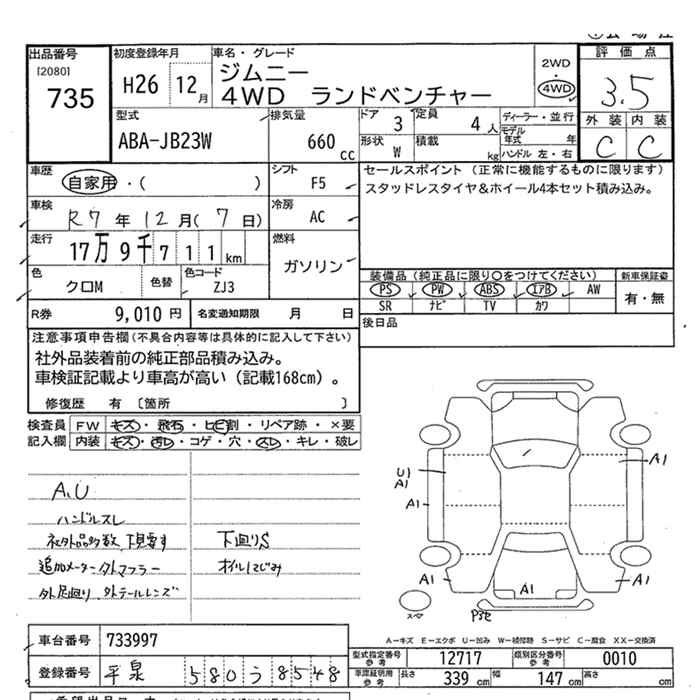 出品番号
[2080]
735
初度登録年月
H26 12月
車名・グレード
ジムニー
4WD ランドベンチャー
2WD
・
4WD
評価点
3.5
外装 内装
C C
型式
ABA-JB23W
排気量
660 cc
ドア 3
定員 4人
形状 W
積載 kg
ディーラー・並行
モデル年式 年
ハンドル 左・右
車歴
自家用・( )
シフト
F5
セールスポイント (正常に機能するものに限ります)
スタッドレスタイヤ&ホイール4本セット積み込み。
車検
R7年12月(7日)
冷房
AC
走行
17万9千711km
燃料
ガソリン
色
クロM
色替
色コード
ZJ3
装備品 (純正品に限り○をつけてください)
PS PW ABS エアB AW
SR ナビ TV カワ
新車保証書
有・無
R券 9,010円
名変通知期限 月 日
後日品
注意事項申告欄(不具合内容等は具体的に記入して下さい)
社外品装着前の純正部品積み込み。
車検証記載より車高が高い(記載168cm)。
修復歴 有 〔箇所 〕
検査員
記入欄
FW キズ・飛石・ヒビ割・リペア跡・×要
内装 キズ・汚レ・コゲ・穴・スレ・キレ・破レ
A,U
ハンドルスレ
社外品多数、下見要す
追加メーター、外マフラー
外足廻り、外テールレンズ
下廻りS
オイルにじみ
A1
U1
A1
A1
A1
A1
A1
スペア
A-キズ E-エクボ U-凹み W-補修跡 S-サビ C-腐食 XX-交換済
車台番号 733997
登録番号 平泉 580う8548
型式指定番号
参考
12717
類別区分番号
参考
0010
車庫証明用
参考
長さ 339 cm 幅 147 cm 高さ cm